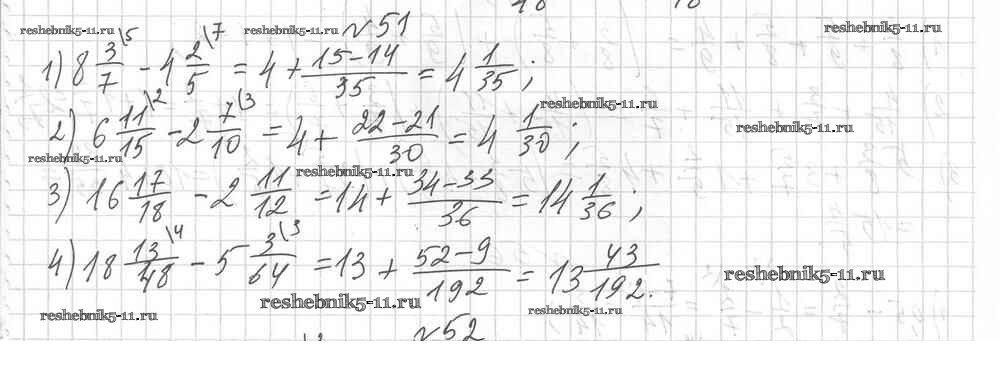 reshebnik5-11.ru reshebnik5-11.ru №51 reshebnik5-11.ru
1) 8 3/7 \5 - 4 2/5 \7 = 4 + (15-14)/35 = 4 1/35;
reshebnik5-11.ru
2) 6 11/15 \2 - 2 7/10 \3 = 4 + (22-21)/30 = 4 1/30; reshebnik5-11.ru
reshebnik5-11.ru reshebnik5-11.ru
3) 16 17/18 - 2 11/12 = 14 + (34-33)/36 = 14 1/36;
4) 18 13/48 \4 - 5 3/64 \3 = 13 + (52-9)/192 = 13 43/192.
reshebnik5-11.ru
reshebnik5-11.ru
reshebnik5-11.ru reshebnik5-11.ru
№52